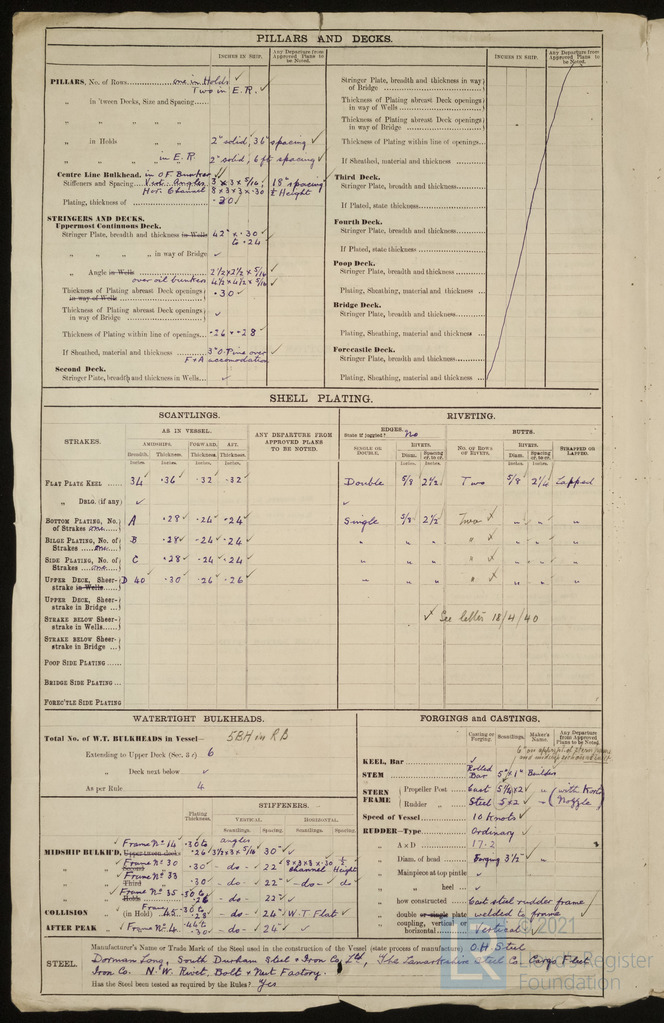 PILLARS AND DECKS.
INCHES IN SHIP.
Any Departure from Approved Plans to be Noted.
PILLARS, No. of Rows one in Holds ✓
Two in E.R. ✓
„ in 'tween Decks, Size and Spacing
„ „ „ „
„ in Holds „ 2" solid, 36" spacing ✓
„ in E.R. „ 2" solid, 6 ft spacing ✓
Centre Line Bulkhead. in O.F. Bunker
Stiffeners and Spacing Vert. Angles 3 x 3 x 5/16, 18" spacing
Hor. Channel 8 x 3 x 3 x .30 ½ Height
Plating, thickness of .30 ✓
STRINGERS AND DECKS.
Uppermost Continuous Deck.
Stringer Plate, breadth and thickness in Wells 42" x .30 ✓
to .24
„ „ „ „ in way of Bridge ✓
„ Angle in Wells 2½ x 2½ x 5/16 ✓
over oil bunker 4½ x 4½ x 5/16 ✓
Thickness of Plating abreast Deck openings in way of Wells .30 ✓
Thickness of Plating abreast Deck openings in way of Bridge ✓
Thickness of Plating within line of openings .26 + .28 ✓
If Sheathed, material and thickness 3" O. Pine over
F + A accomodation
Second Deck.
Stringer Plate, breadth and thickness in Wells ✓
INCHES IN SHIP.
Any Departure from Approved Plans to be Noted.
Stringer Plate, breadth and thickness in way of Bridge
Thickness of Plating abreast Deck openings in way of Wells
Thickness of Plating abreast Deck openings in way of Bridge
Thickness of Plating within line of openings
If Sheathed, material and thickness
Third Deck.
Stringer Plate, breadth and thickness
If Plated, state thickness
Fourth Deck.
Stringer Plate, breadth and thickness
If Plated, state thickness
Poop Deck.
Stringer Plate, breadth and thickness
Plating, Sheathing, material and thickness
Bridge Deck.
Stringer Plate, breadth and thickness
Plating, Sheathing, material and thickness
Forecastle Deck.
Stringer Plate, breadth and thickness
Plating, Sheathing, material and thickness
SHELL PLATING.
SCANTLINGS.
RIVETING.
STRAKES.
AS IN VESSEL.
AMIDSHIPS. FORWARD. AFT.
Breadth. Thickness. Thickness. Thickness.
Inches. Inches. Inches. Inches.
ANY DEPARTURE FROM APPROVED PLANS TO BE NOTED.
EDGES.
State if joggled? No
SINGLE OR DOUBLE.
RIVETS.
Diam. Spacing cr. to cr.
Inches. Inches.
BUTTS.
No. OF ROWS OF RIVETS.
RIVETS.
Diam. Spacing cr. to cr.
Inches. Inches.
STRAPPED OR LAPPED.
FLAT PLATE KEEL 34 ✓ .36 ✓ .32 ✓ .32 ✓ Double 5/8 2½ Two ✓ 5/8 ✓ 2¼ Lapped
„ DBLG. (if any) ✓ ✓
BOTTOM PLATING, No. of Strakes one A .28 ✓ .24 ✓ .24 ✓ Single 5/8 2½ Two x „ „ „
BILGE PLATING, No. of Strakes one B .28 ✓ .24 ✓ .24 ✓ „ „ „ „ x „ „ „
SIDE PLATING, No. of Strakes one C .28 ✓ .24 ✓ .24 ✓ „ „ „ „ x „ „ „
UPPER DECK, Sheerstrake in Wells D 40 .30 ✓ .26 ✓ .26 ✓ „ „ „ „ x „ „ „
UPPER DECK, Sheerstrake in Bridge
STRAKE BELOW SHEERstrake in Wells
x See letter 18/4/40
STRAKE BELOW SHEERstrake in Bridge
POOP SIDE PLATING
BRIDGE SIDE PLATING
FOREC'TLE SIDE PLATING
WATERTIGHT BULKHEADS.
Total No. of W.T. BULKHEADS in Vessel—
5BH in R.B
Extending to Upper Deck (Sec. 3 c) 6
„ Deck next below ✓
As per Rule 4
Plating Thickness.
STIFFENERS.
VERTICAL. HORIZONTAL.
Scantlings. Spacing. Scantlings. Spacing.
angles
MIDSHIP BULKH'D, Frame No. 14 .30 to .26 3½ x 3 x 5/16 30" ✓
„ Frame No. 30 .30 ✓ - do - ✓ 22" 8 x 3 x 3 x .30 Channel ½ Height
„ Frame No. 33 Third .30 ✓ - do - ✓ 22" - do - ✓ do
„ Frame No. 35 .30 to .26 - do - ✓ 22" ✓
COLLISION (in Hold) Frame 45 .30 to .23 - do - ✓ 24" ✓ W.T. Flat ✓
AFTER PEAK „ Frame No. 4 .44 to .30 - do - ✓ 24" ✓
FORGINGS and CASTINGS.
Casting or Forging. Scantlings. Maker's Name. Any Departure from Approved Plans to be Noted.
KEEL, Bar ✓
STEM Rolled Bar 5" x 1" Builders
STERN FRAME Propeller Post Cast 5¼ x 2 ✓ „ (with Kort
Rudder „ Steel 5 x 2 ✓ „ Nozzle)
Speed of Vessel 10 Knots ✓
RUDDER—Type Ordinary ✓
„ A x D 17.2
„ Diam. of head Forging 3½" ✓ „
„ Mainpiece at top pintle ✓
„ „ heel ✓
„ how constructed Cast steel rudder frame
„ double or single plate welded to frame
„ coupling, vertical or horizontal Vertical ✓
STEEL.
Manufacturer's Name or Trade Mark of the Steel used in the construction of the Vessel (state process of manufacture) O.H. Steel
Dorman Long, South Durham Steel & Iron Co. Ltd, The Lanarkshire Steel Co. Cargo Fleet
Iron Co. N.W. Rivet, Bolt & Nut Factory.
Has the Steel been tested as required by the Rules? Yes
© 2021
Lloyd's Register
Foundation